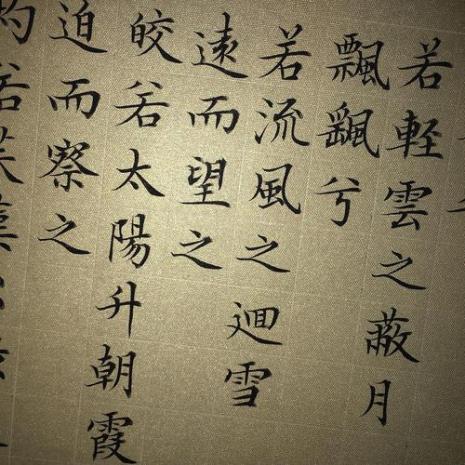 若軽雲之蔽月
飄颻兮
若流風之迴雪
遠而望之
皎若太陽升朝霞
迫而察之
灼若芙